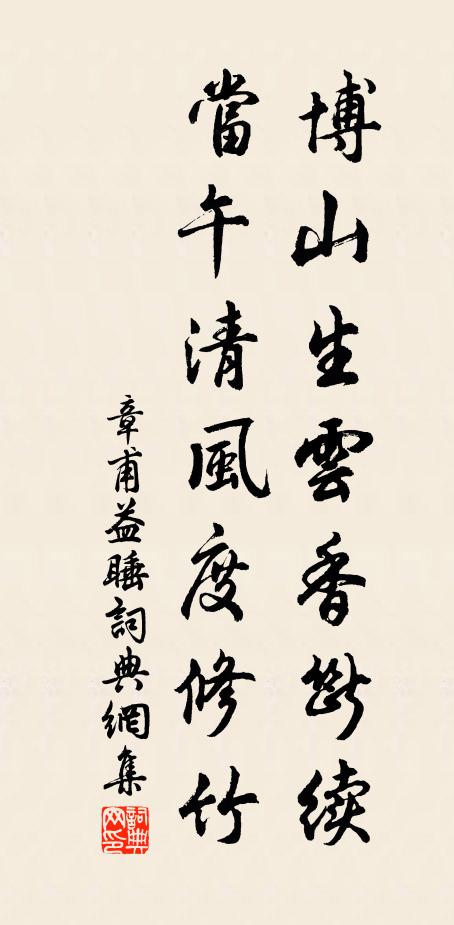 博山生雲香断续
當午清風度修竹
章甫益睡詞典網集
詞典网印